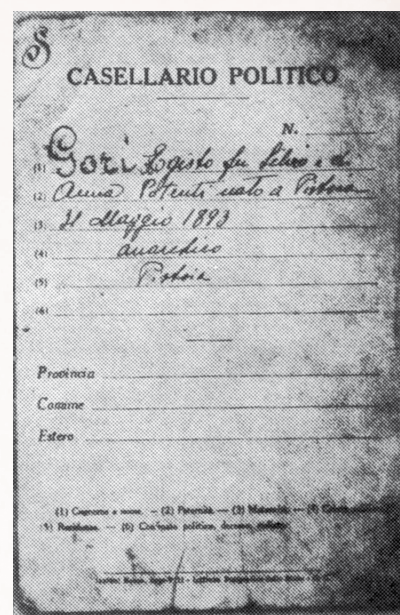 S
CASELLARIO POLITICO
N.
(1) Gori Egisto fu Silvio e di
(2) Anna Potenti nato a Pistoia
(3) 21 Maggio 1893
(4) anarchico
(5) Pistoia
(6)
Provincia
Comune
Estero
(1) Cognome e nome. — (2) Paternità. — (3) Maternità. — (4)
(5) Residenza. — (6) Confinato politico,